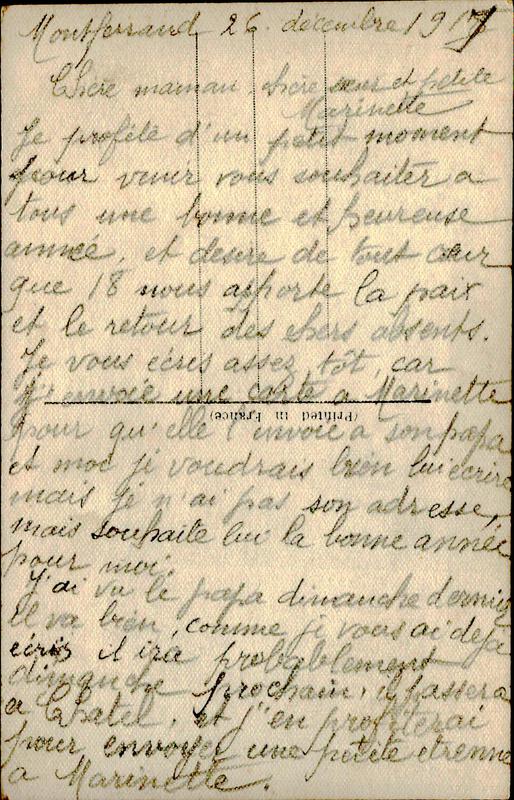 Montferrand 26 décembre 1917
Chère maman, chère sœur et petite
Marinette
Je profite d'un petit moment
pour venir vous souhaiter a
tous une bonne et heureuse
année, et desire de tout cœur
que 18 nous apporte la paix
et le retour des chers absents.
Je vous ecris assez tôt, car
j'envoie une carte a Marinette
(Printed in France)
pour qu'elle l'envoie a son papa
et moi je voudrais bien lui écrire
mais je n'ai pas son adresse,
mais souhaite lui la bonne année
pour moi.
J'ai vu le papa dimanche dernier
Il va bien, comme je vous ai déjà
écris il ira probablement
dimanche prochain, il passera
a Chatel, et j'en profiterai
pour envoyer une petite etrenne
a Marinette.